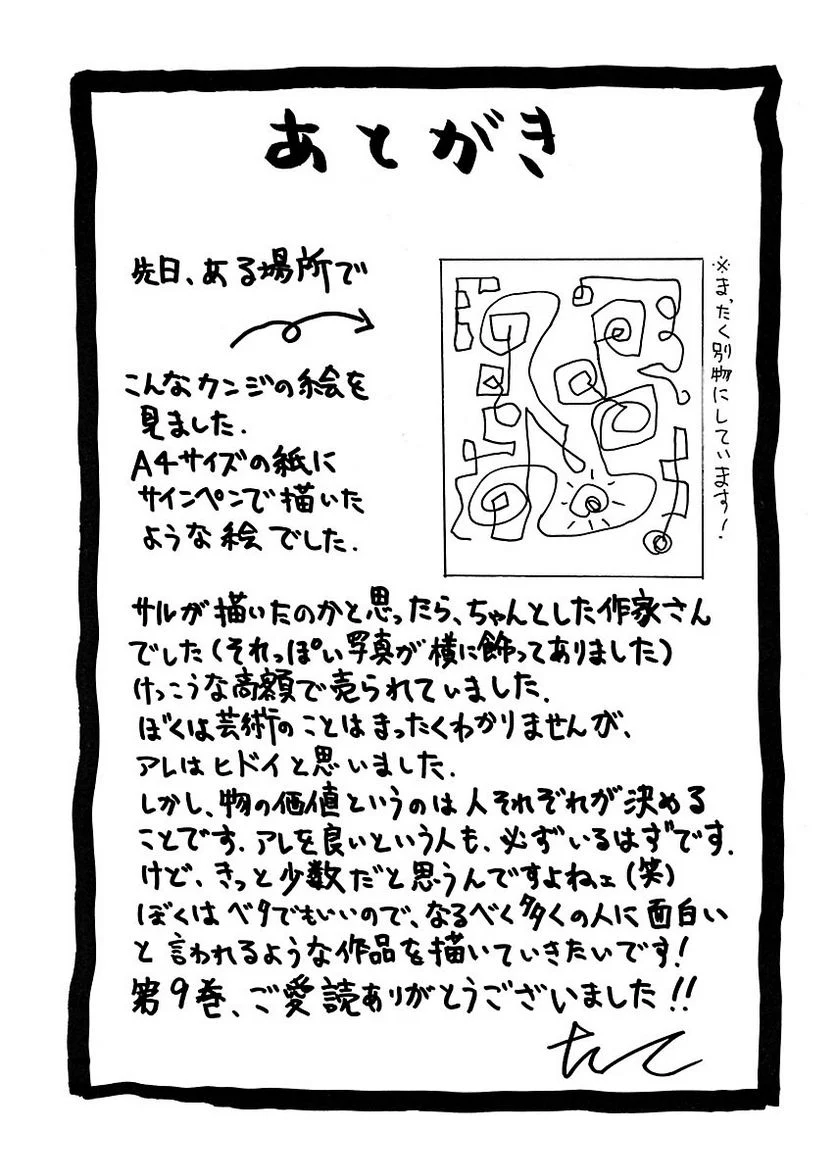 あとがき
先日、ある場所で
※まったく別物にしています!
こんなカンジの絵を
見ました.
A4サイズの紙に
サインペンで描いた
ような絵でした.
サルが描いたのかと思ったら、ちゃんとした作家さん
でした(それっぽい写真が横に飾ってありました)
けっこうな高額で売られていました.
ぼくは芸術のことはまったくわかりませんが、
アレはヒドイと思いました.
しかし、物の価値というのは人それぞれが決める
ことです.アレを良いという人も、必ずいるはずです.
けど、きっと少数だと思うんですよねェ(笑)
ぼくはベタでもいいので、なるべく多くの人に面白い
と言われるような作品を描いていきたいです!
第9巻、ご愛読ありがとうございました!!